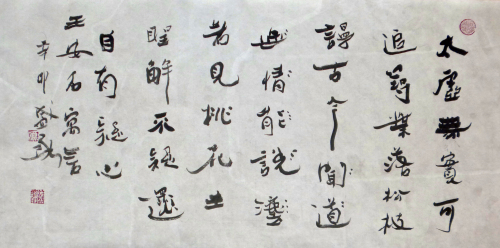 太虛無實可
追尋葉落松枝
謾古今聞道
無情能說灋
若見桃花生
聖解不疑還
自有疑心
王安石寓言
辛卯